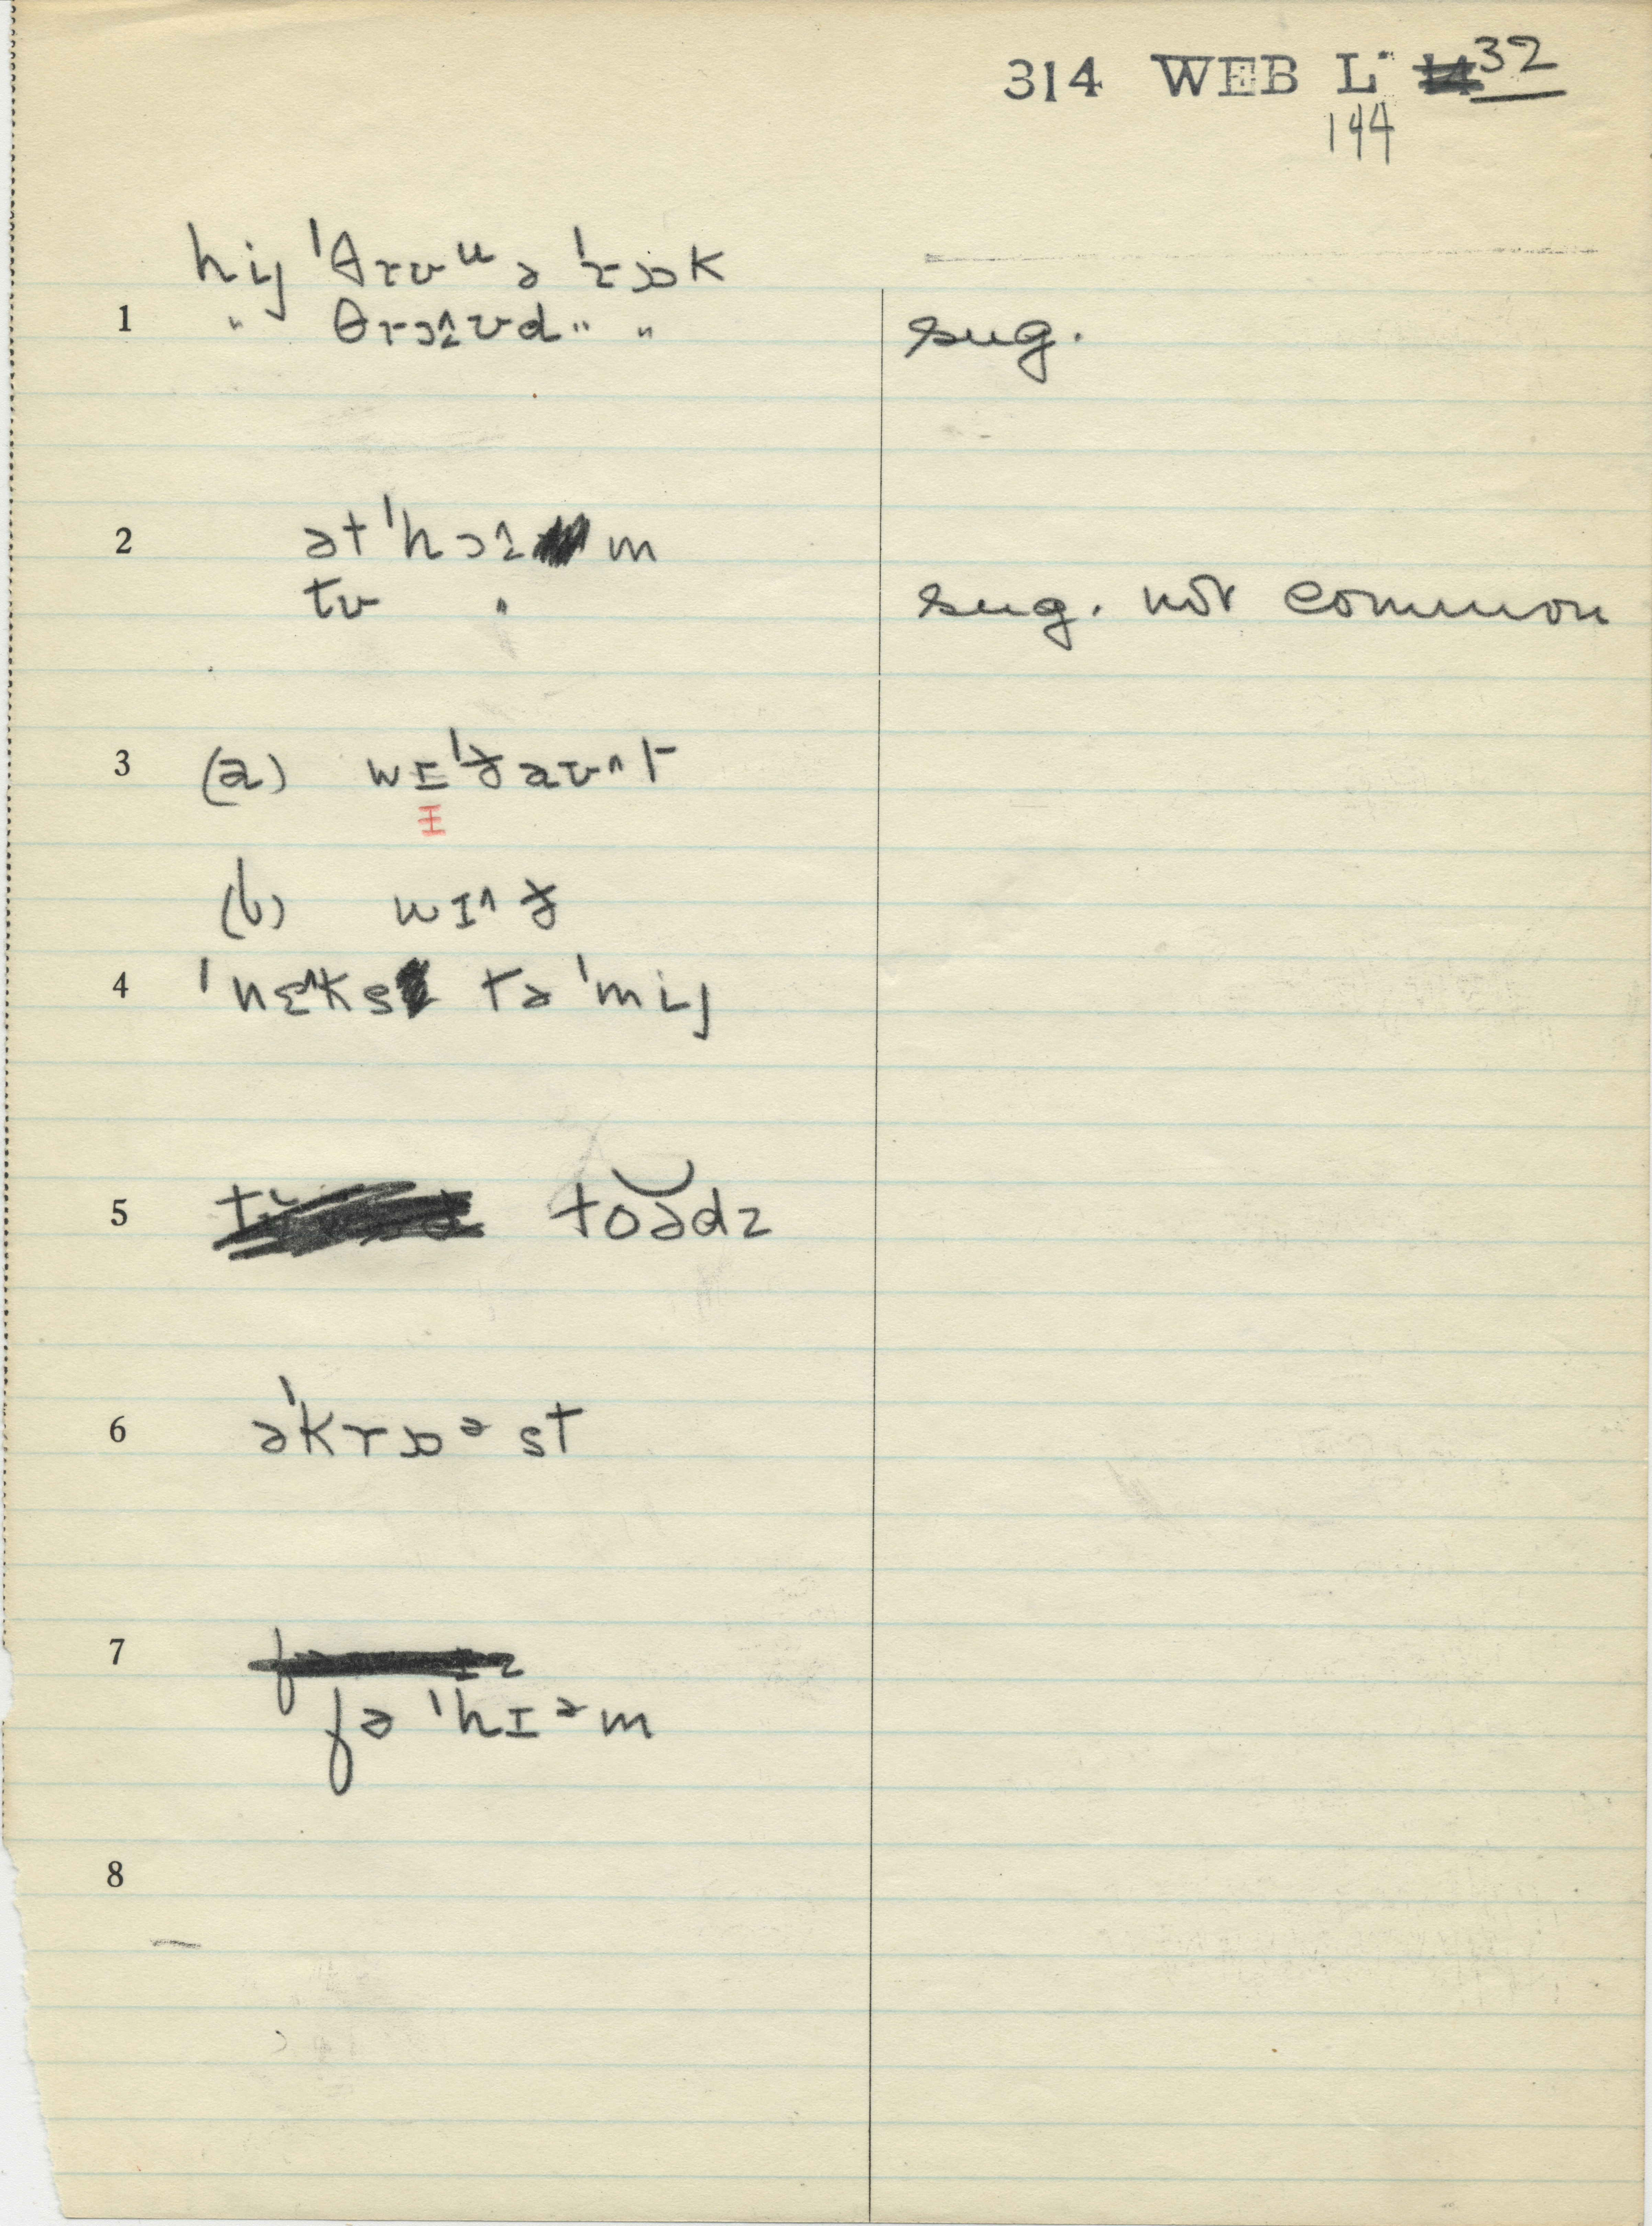 314 WEB L 32
144
hij ˈθrʊᵘ ə ˈrɒk
1 " θrɔ˄vd " " sug.
2 ətˈhɔm
tʊ " sug. not common
3 (a) wɪˈðaʊ^t
ɪ
(b) wɪ^ð
4 ˈnɛ^ks tə ˈmij
5 toədz
6 əˈkrɒᵊst
7
fəˈhɪᵊm
8